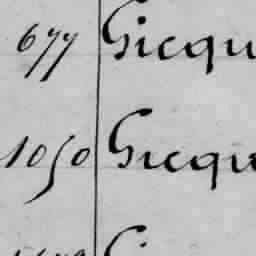 677 Gicqu
1050 Gicqu